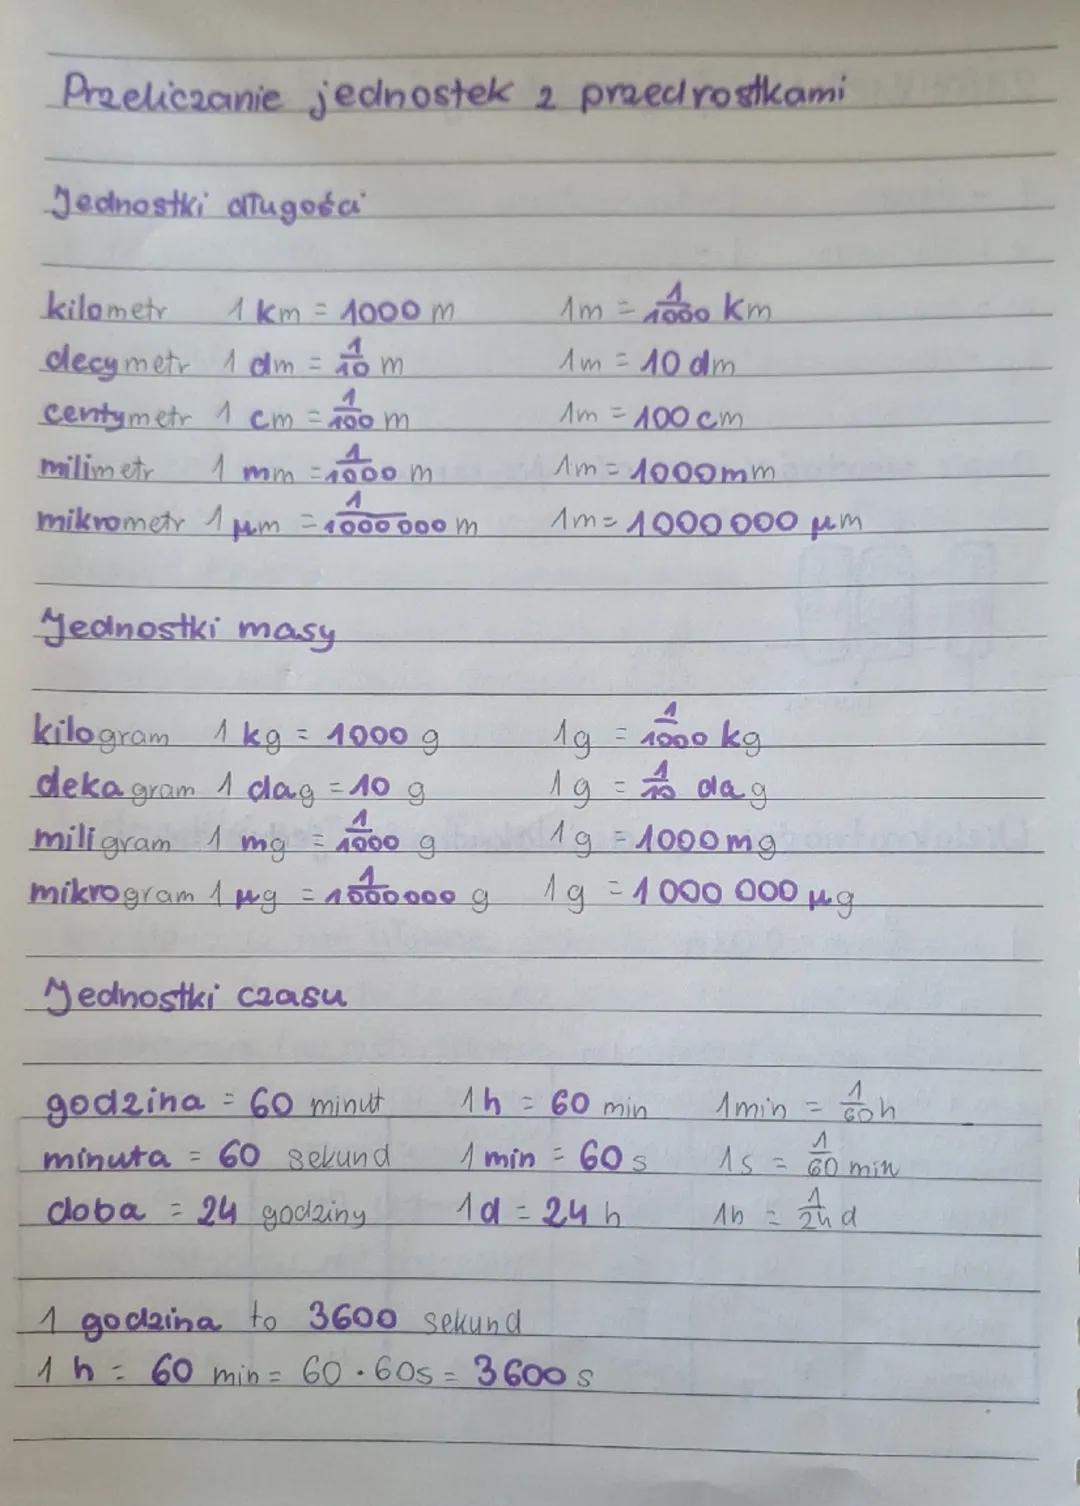 Przeliczanie jednostek z przedrostkami
Jednostki długości
kilometr 1 km = 1000 m 1m = 1/1000 km
decymetr 1 dm = 1/10 m 1m = 10 dm
centymetr 1 cm = 1/100 m 1m = 100 cm
milimetr 1 mm = 1/1000 m 1m = 1000mm
mikrometr 1 μm = 1/1000 000 m 1m = 1000 000 μm
Jednostki masy
kilogram 1 kg = 1000 g 1g = 1/1000 kg
dekagram 1 dag = 10 g 1g = 1/10 dag
miligram 1 mg = 1/1000 g 1g = 1000mg
mikrogram 1 μg = 1/1000000 g 1g = 1 000 000 μg
Jednostki czasu
godzina = 60 minut 1h = 60 min 1min = 1/60 h
minuta = 60 sekund 1 min = 60 s 1s = 1/60 min
doba = 24 godziny 1d = 24 h 1h = 1/24 d
1 godzina to 3600 sekund
1 h = 60 min = 60 · 60s = 3600 s